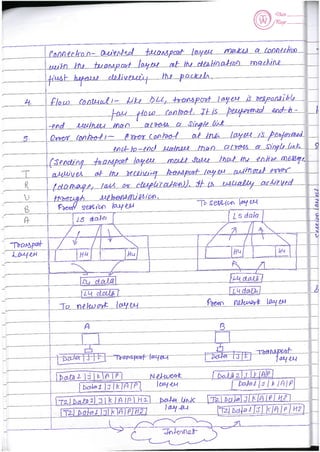 Date
Page
Connection- oriented transport layer makes a connection
with the transport layer at the destination machine
first before delivering the packets.
4 Flow Control:- Like DLL, transport layer is responsible
for flow control. It is performed end-to-
-end rather than across a single link
5 Error Control:- Error control at this layer is performed
end-to-end rather than across a single link
(Sending transport layer make sure that the entire message
arrives at the receiving transport layer without error
(damage, loss or duplication)). It is usually achieved
through retransmission.
T
R
U
B
A
From session layer To session layer
L5 data L5 data
Transport
Layer H4 H4 H4 H4
L4 data L4 data
L4 data L4 data
To network layer From network layer
A B
Data J Transport layer Data J Transport layer
Data2 J K A P Network layer Data2 J K A P
Data1 J K A P Data1 J K A P
T2 Data2 J K A P H2 Data link layers T2 Data2 J K A P H2
T2 Data1 J K A P H2 T2 Data1 J K A P H2
Internet